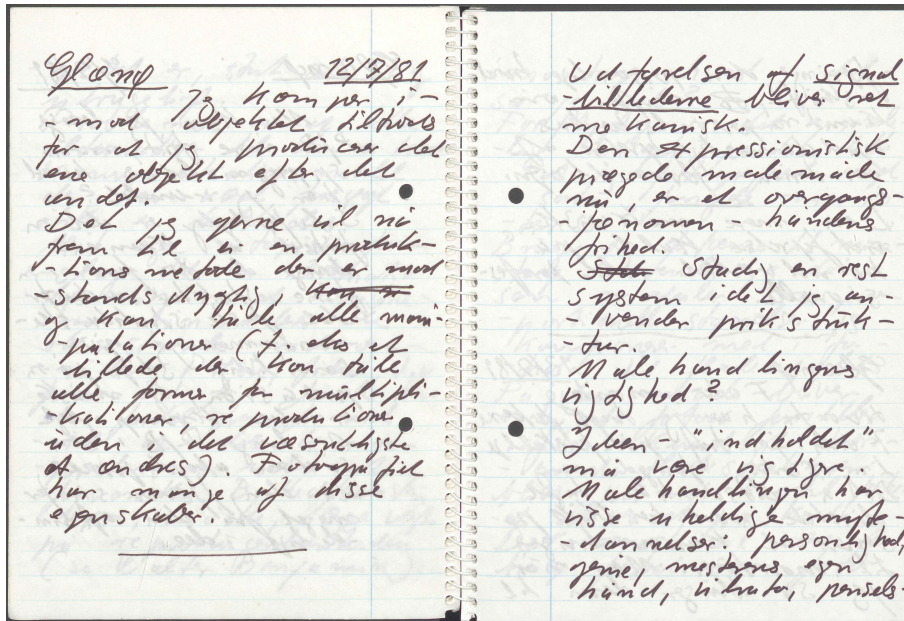 Glænø 12/7/81
Jeg kommer i-
-mod objektet tilmods
for at jeg producerer det
ene objekt efter det
andet.
Det jeg gerne vil nå
frem til er en produk-
-tions metode der er mod
-stands dygtig,
og kan tåle alle mani-
-pulationer (f. eks et
billede der kan tåle
alle former for multipli-
-kationer, reproduktioner
uden i det væsentligste
at ændres). Fotografiet
har mange af disse
egenskaber.
Udførelsen af signal
-billederne bliver ret
mekanisk.
Den expressionistisk
prægede malemåde
nu, er et overgangs-
fænomen - håndens
frihed.
Stadig en rest
system idet jeg an-
-vender prikstruk-
-tur.
Malehandlingens
vigtighed?
Ideen - "indholdet"
må være vigtigere.
Malehandlingen har
visse uheldige myte-
-dannelser: personlighed,
geni, mesterens egen
hånd, vibrato, pensels-